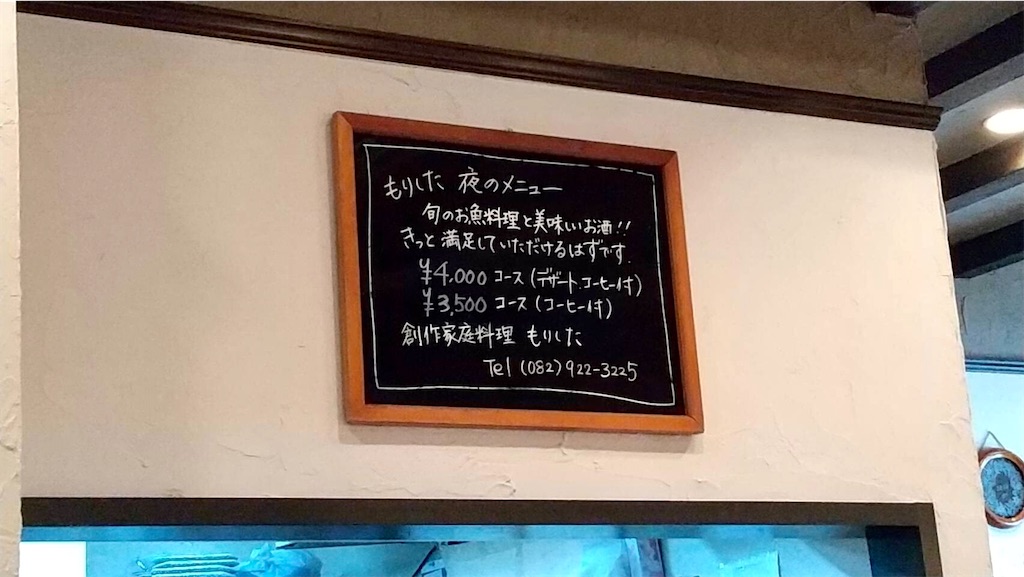 もりした 夜のメニュー
旬のお魚料理と美味しいお酒!!
きっと満足していただけるはずです.
¥4,000 コース(デザート、コーヒー付)
¥3,500 コース(コーヒー付)
創作家庭料理 もりした
Tel (082)922-3225